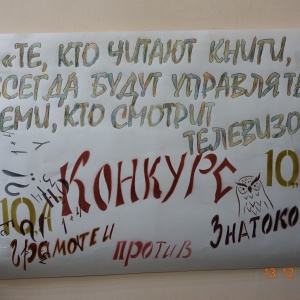 «ТЕ, КТО ЧИТАЮТ КНИГИ,
ВСЕГДА БУДУТ УПРАВЛЯТЬ
ТЕМИ, КТО СМОТРИТ
ТЕЛЕВИЗО
КОНКУРС
10А
10
ГРАМОТЕИ
ПРОТИВ
ЗНАТОКО
13 12